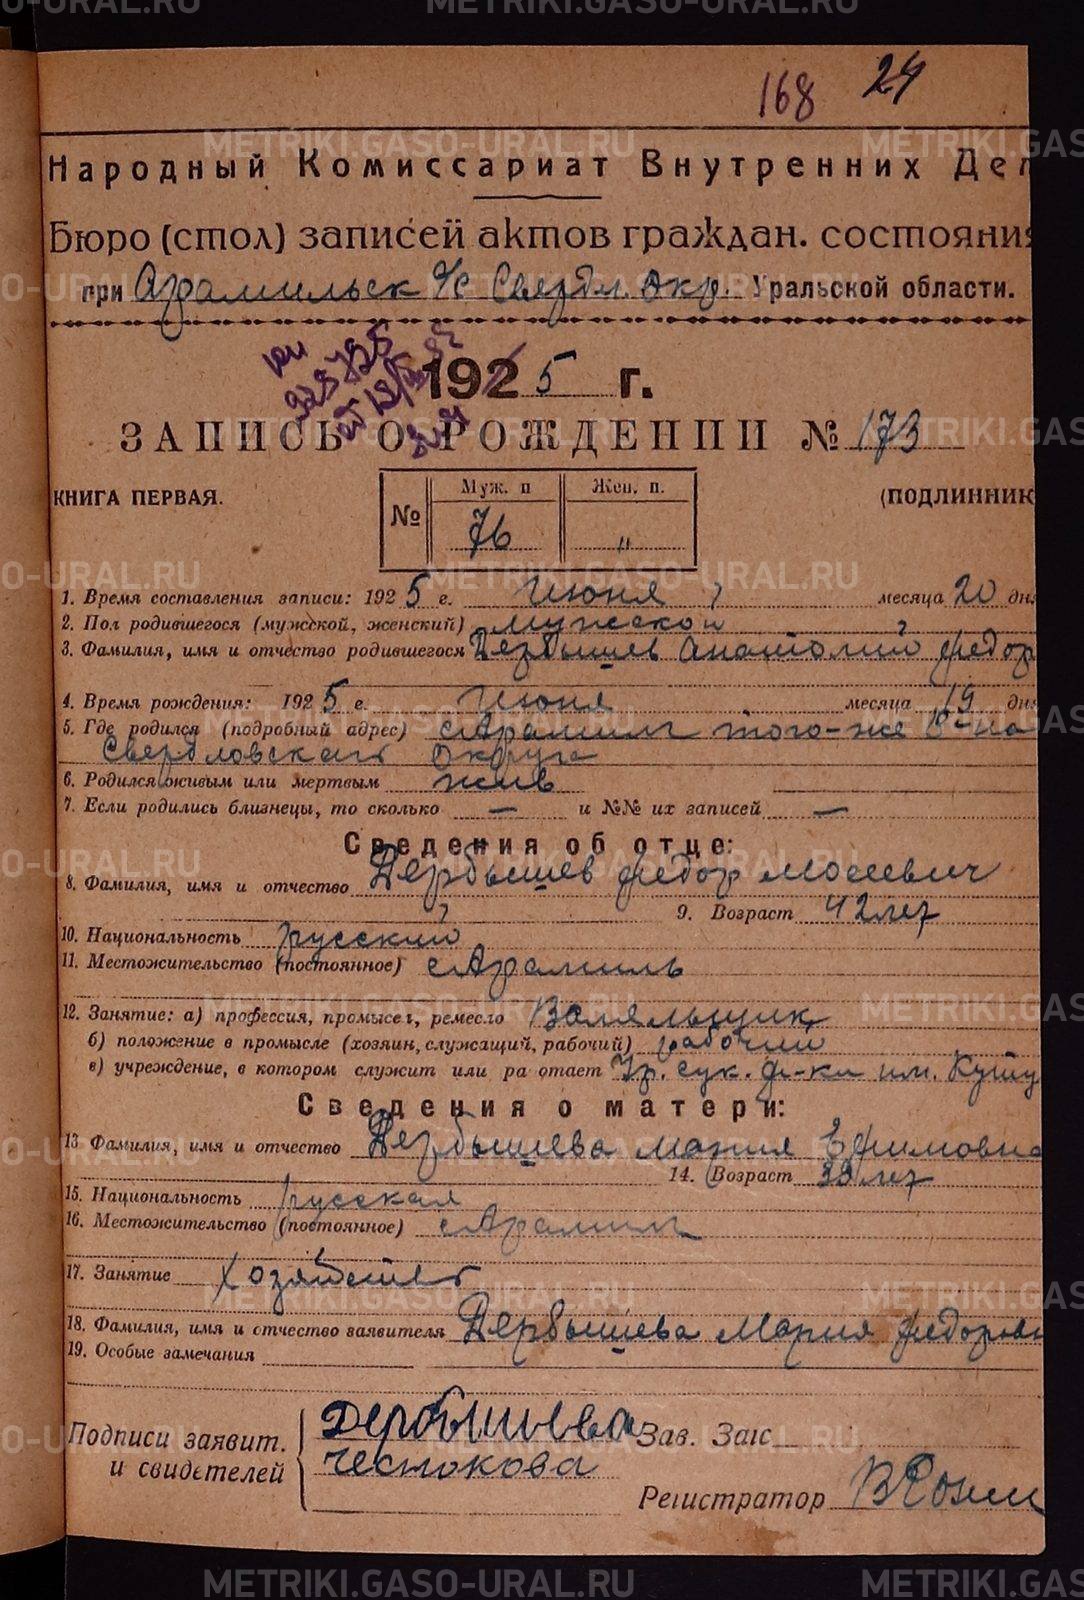 168 24
Народный Комиссариат Внутренних Дел
Бюро (стол) записей актов граждан. состояния
при Арамильск р/с Свердл. Окр. Уральской области.
1925 г.
ЗАПИСЬ О РОЖДЕНИИ № 173
КНИГА ПЕРВАЯ. (ПОДЛИННИК
№ Муж. п Жен. п.
76 "
1. Время составления записи: 1925 г. Июня месяца 20 дня
2. Пол родившегося (мужской, женский) мужской
3. Фамилия, имя и отчество родившегося Дербышев Анатолий Федор
4. Время рождения: 1925 г. Июня месяца 19 дня
5. Где родился (подробный адрес) с Арамиль того-же р-на
Свердловского Округа
6. Родился живым или мертвым жив
7. Если родились близнецы, то сколько — и №№ их записей —
Сведения об отце:
8. Фамилия, имя и отчество Дербышев Федор Мосеевич
9. Возраст 42 лет
10. Национальность русский
11. Местожительство (постоянное) с Арамиль
12. Занятие: а) профессия, промысел, ремесло Валяльщик
б) положение в промысле (хозяин, служащий, рабочий) рабочий
в) учреждение, в котором служит или ра отает Ур. сук. ф-ки им.
Сведения о матери:
13. Фамилия, имя и отчество Дербышева Мария Ефимовна
14. Возраст 39 лет
15. Национальность русская
16. Местожительство (постоянное) с Арамиль
17. Занятие
18. Фамилия, имя и отчество заявителя Дербышева Мария Федоровн
19. Особые замечания
Подписи заявит. Дербышева Зав. Загс
и свидетелей Чеснокова
Регистратор
METRIKI.GASO-URAL.RU